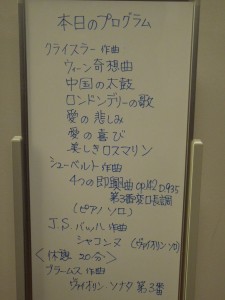 本日のプログラム
クライスラー 作曲
ウィーン奇想曲
中国の太鼓
ロンドンデリーの歌
愛の悲しみ
愛の喜び
美しきロスマリン
シューベルト 作曲
4つの即興曲 op.142 D935
第3番変ロ長調
(ピアノ ソロ)
J.S.バッハ 作曲
シャコンヌ (ヴァイオリン ソロ)
<休憩 20分>
ブラームス 作曲
ヴァイオリン ソナタ 第3番